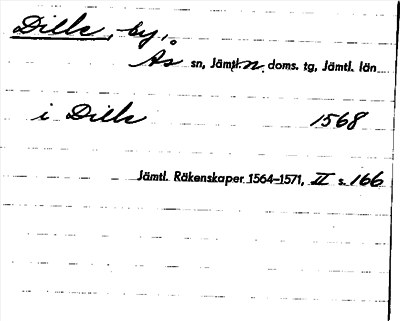 Dille, by,
Ås sn, Jämtl. n. doms. tg, Jämtl. län
i Dille 1568
Jämtl. Räkenskaper 1564-1571, II s. 166